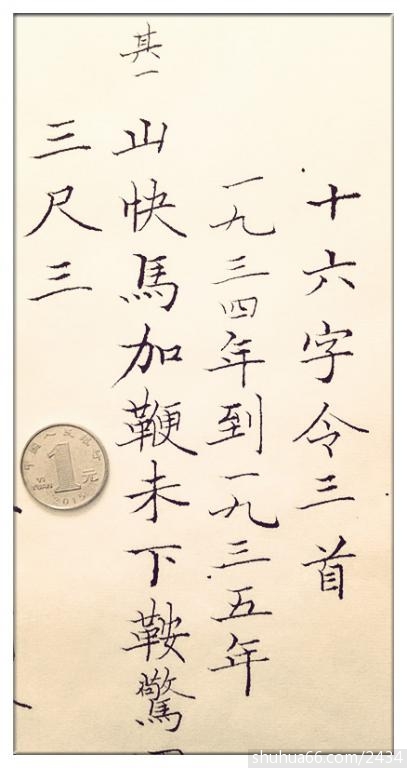 十六字令三首
一九三四年到一九三五年
其一
山快馬加鞭未下鞍驚
三尺三
中国人民银行
1元
YI YUAN
2015
shuhua66.com/2434